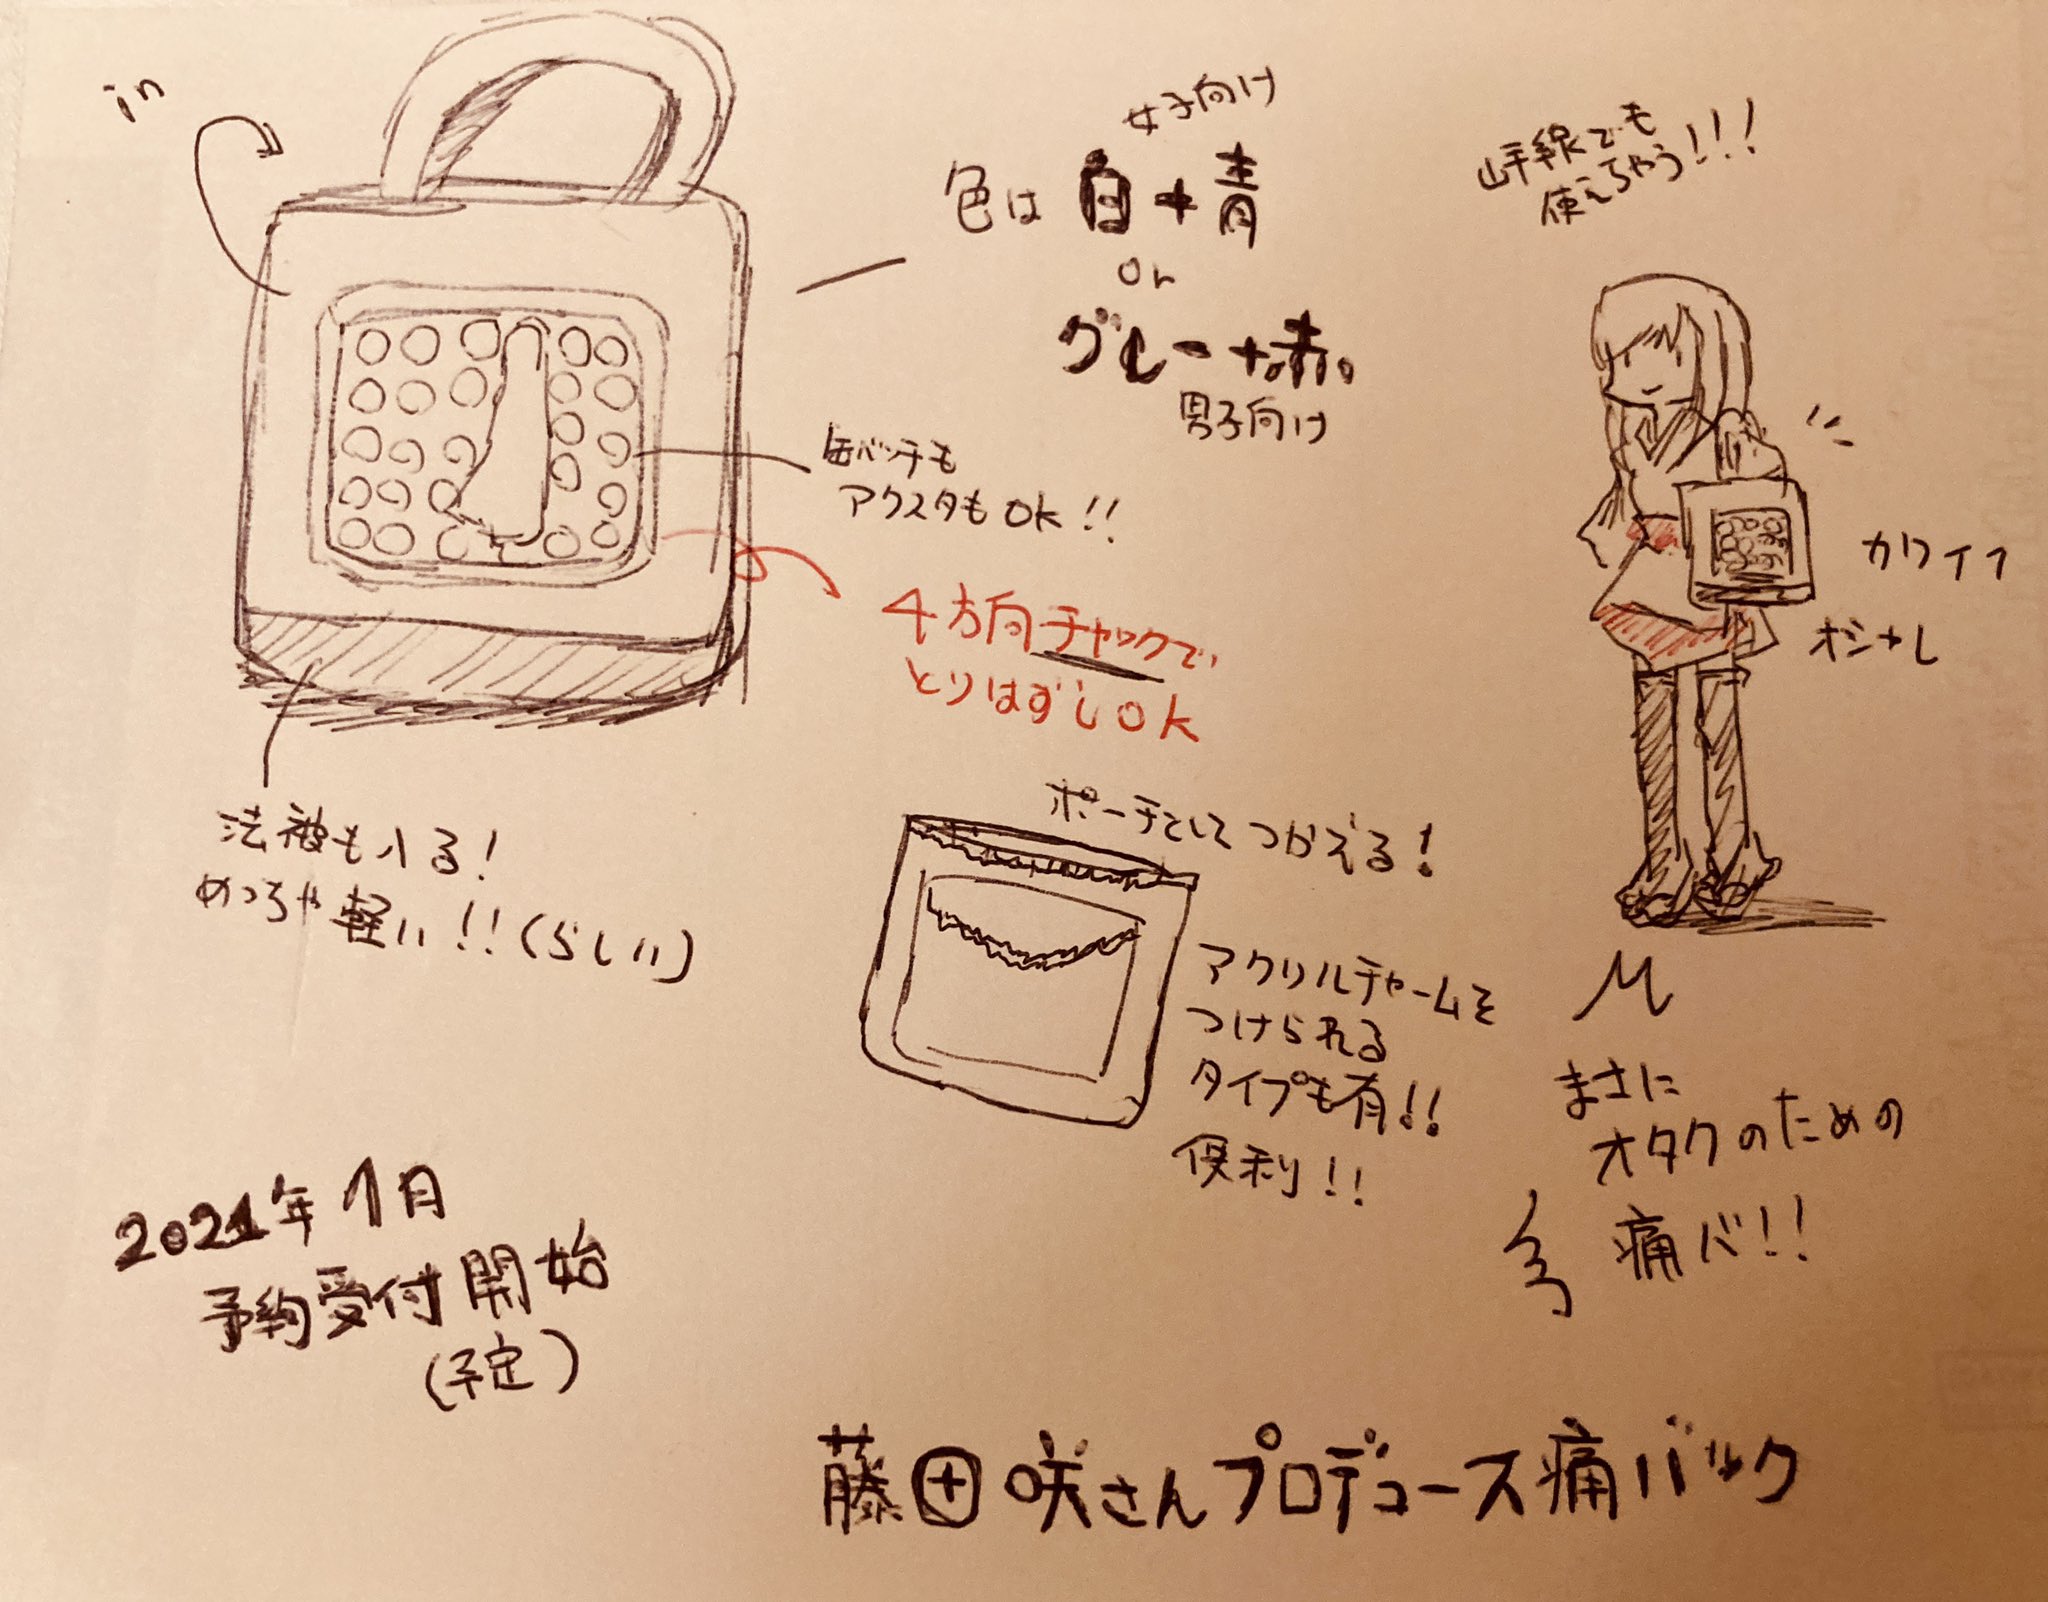 in
女子向け
色は 白+青
or
グレー+赤。
男子向け
山手線でも
使えちゃう!!!
缶バッチも
アクスタもOK!!
4方向チャックで
とりはずしOK
カワイイ
オシャレ
法被も入る!
めっちゃ軽い!!(らしい)
ポーチとしてつかえる!
アクリルチャームを
つけられる
タイプも有!!
便利!!
まさに
オタクのための
痛バ!!
2021年1月
予約受付開始
(予定)
藤田咲さんプロデュース痛バック